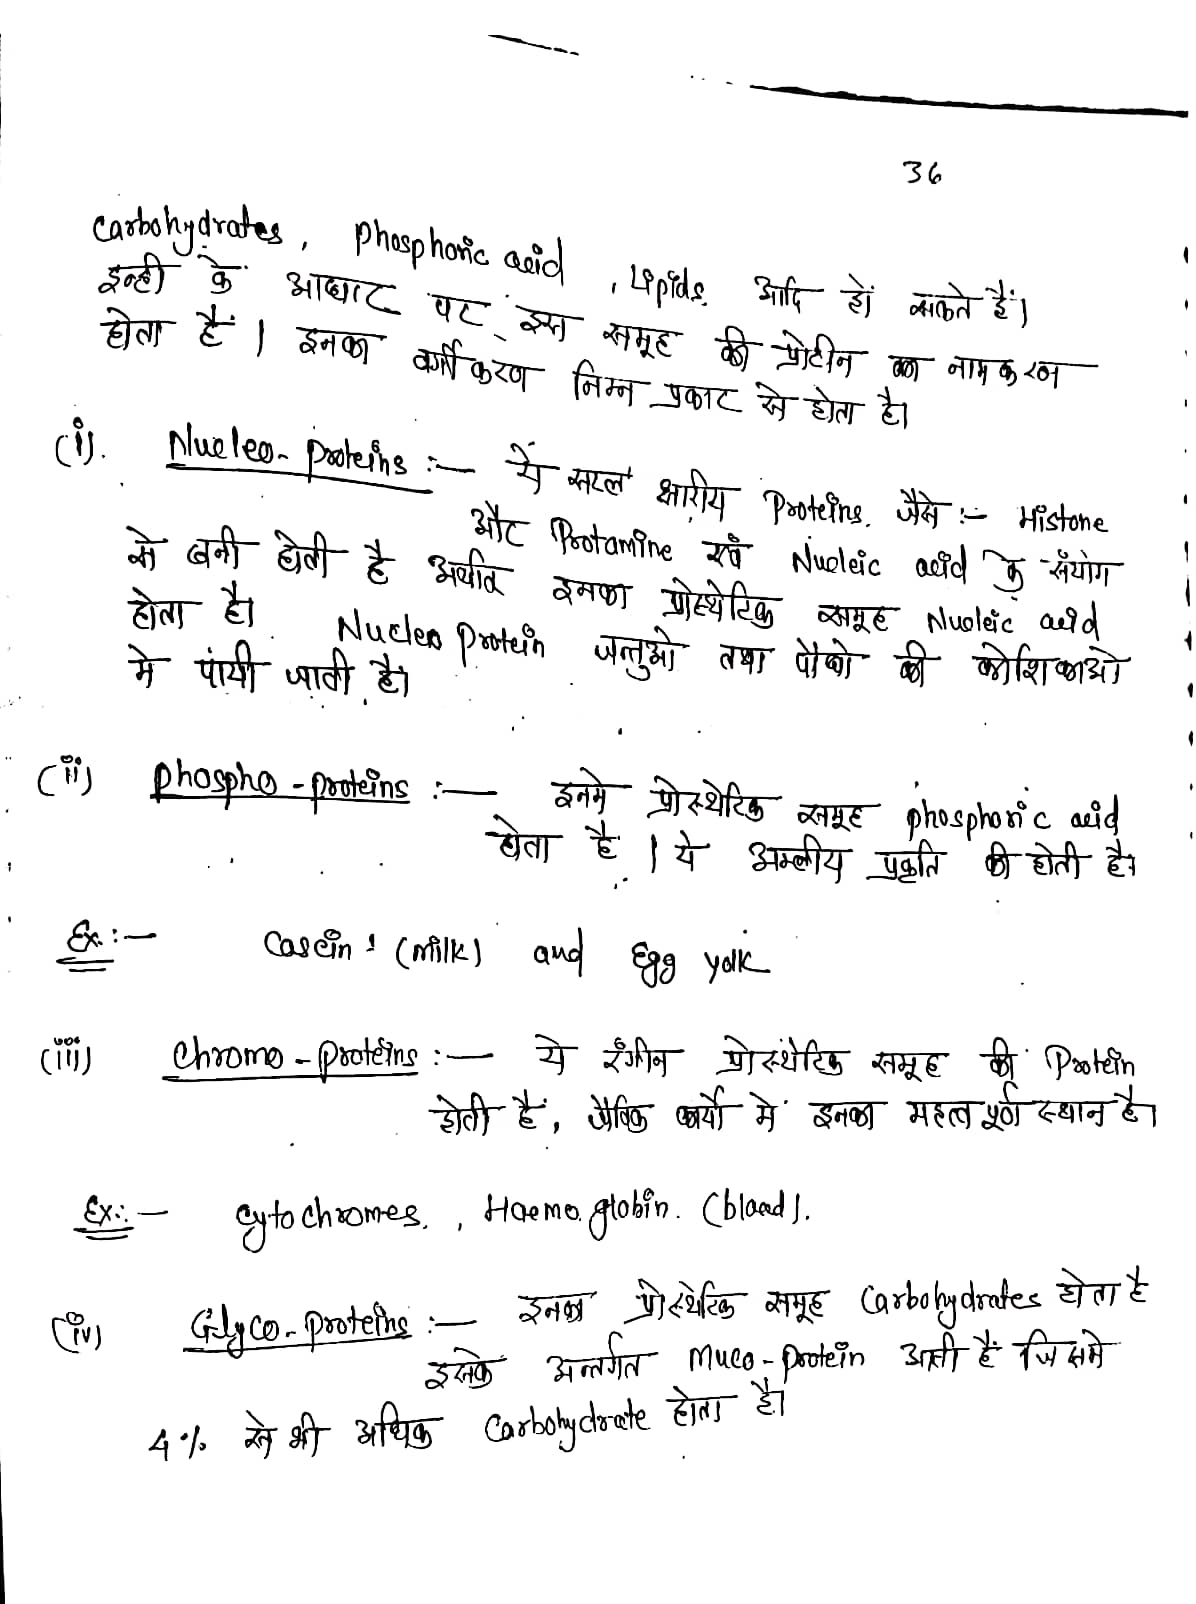 36
Carbohydrates, Phosphoric acid, Lipids आदि हो सकते हैं।
इन्ही के आधार पर इस समूह की प्रोटीन का नामकरण
होता हैं। इनका वर्गीकरण निम्न प्रकार से होता है।
(i). Nucleo-proteins :— ये सरल क्षारीय Proteins. जैसे :- Histone
और Protamine एवं Nucleic acid के संयोग
से बनी होती है अर्थात इनका प्रोस्थेटिक समूह Nucleic acid
होता है। Nucleo protein जन्तुओ तथा पौधो की कोशिकाओ
मे पांयी जाती है।
(ii) Phospho-proteins :— इनमे प्रोस्थेटिक समूह phosphoric acid
होता है । ये अम्लीय प्रकृति की होती है।
Ex :— Casein (milk) and Egg yolk
(iii) Chromo-Proteins :— ये रंगीन प्रोस्थेटिक समूह की Protein
होती हैं, जैविक कार्यों मे इनका महत्व पूर्ण स्थान है।
Ex :— Cytochromes, Haemoglobin. (blood).
(iv) Glyco-proteins :— इनका प्रोस्थेटिक समूह Carbohydrates होता है
इसके अन्तर्गत Muco-protein आती हैं जिसमे
4% से भी अधिक Carbohydrate होता है।